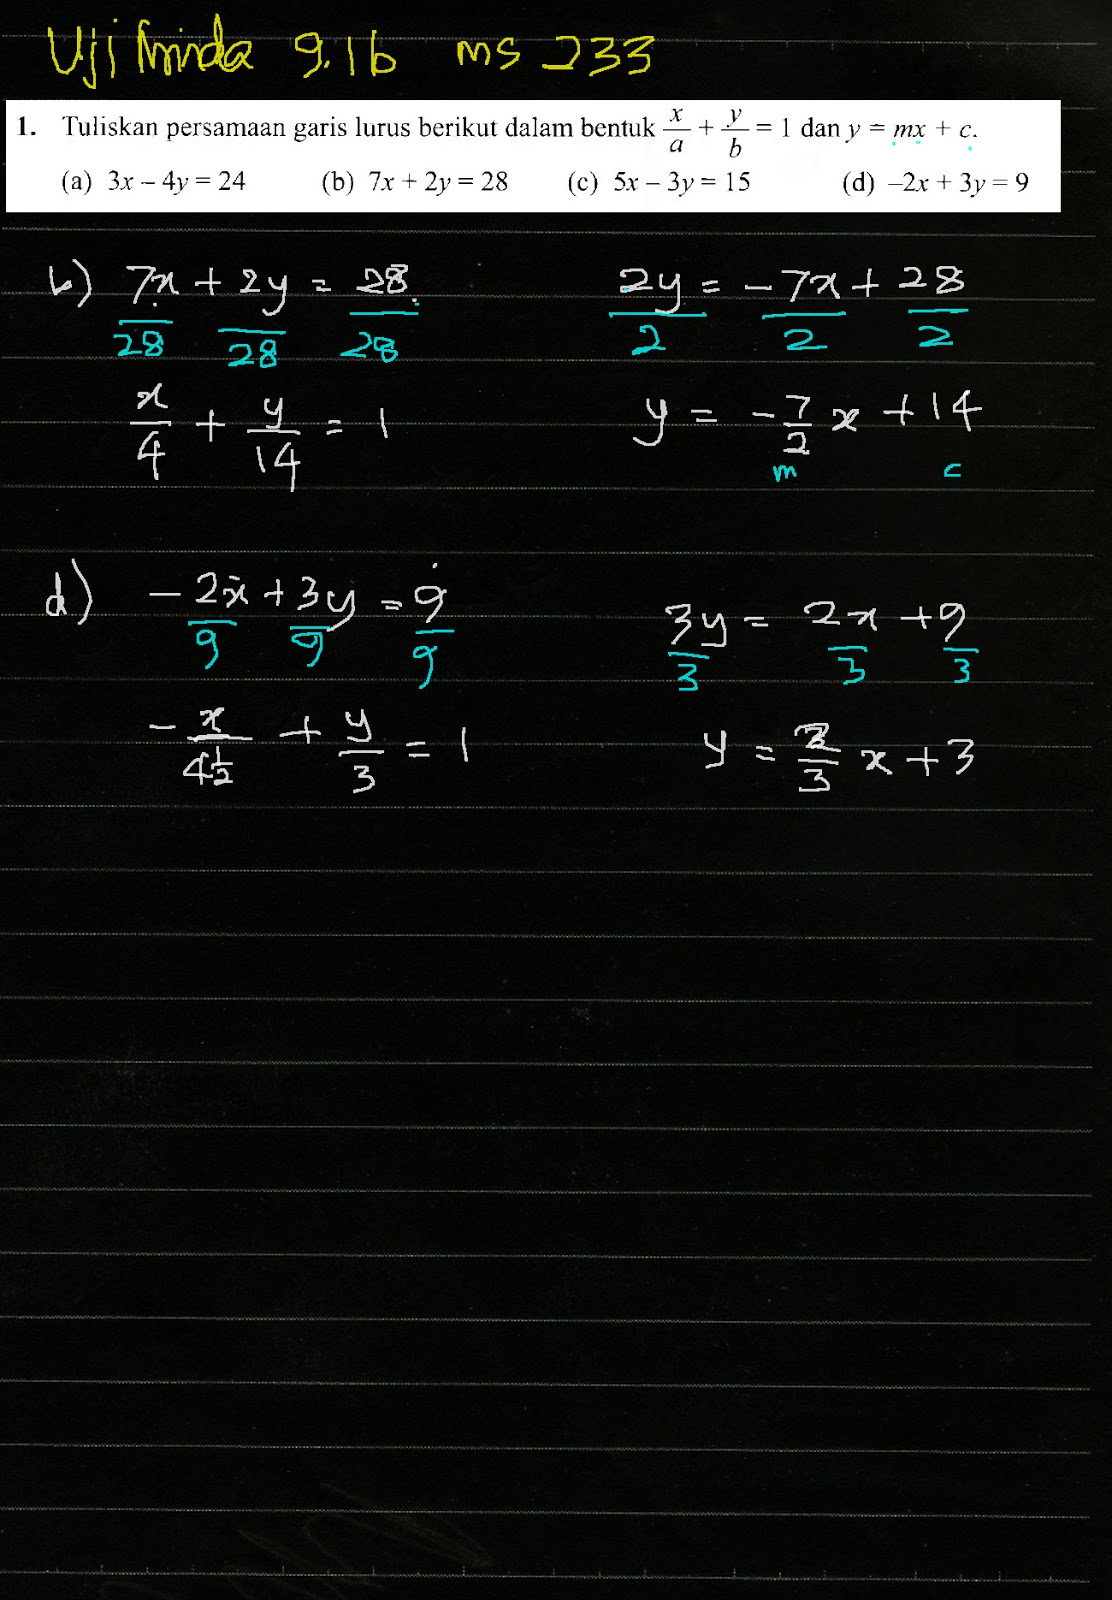 Uji Minda 9.1b ms 233
1. Tuliskan persamaan garis lurus berikut dalam bentuk x/a + y/b = 1 dan y = mx + c.
(a) 3x – 4y = 24 (b) 7x + 2y = 28 (c) 5x – 3y = 15 (d) –2x + 3y = 9
b) 7x/28 + 2y/28 = 28/28 2y/2 = -7x/2 + 28/2
x/4 + y/14 = 1 y = -7/2 x + 14
m c
d) -2x/9 + 3y/9 = 9/9 3y/3 = 2x/3 + 9/3
-x/4½ + y/3 = 1 y = 2/3 x + 3